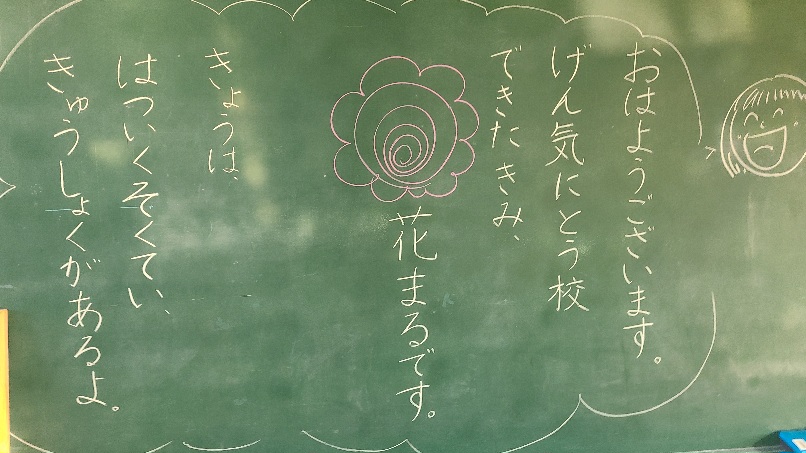 おはようございます。
げん気にとう校
できたきみ、
花まるです。
きょうは、
はついくそくてい、
きゅうしょくがあるよ。